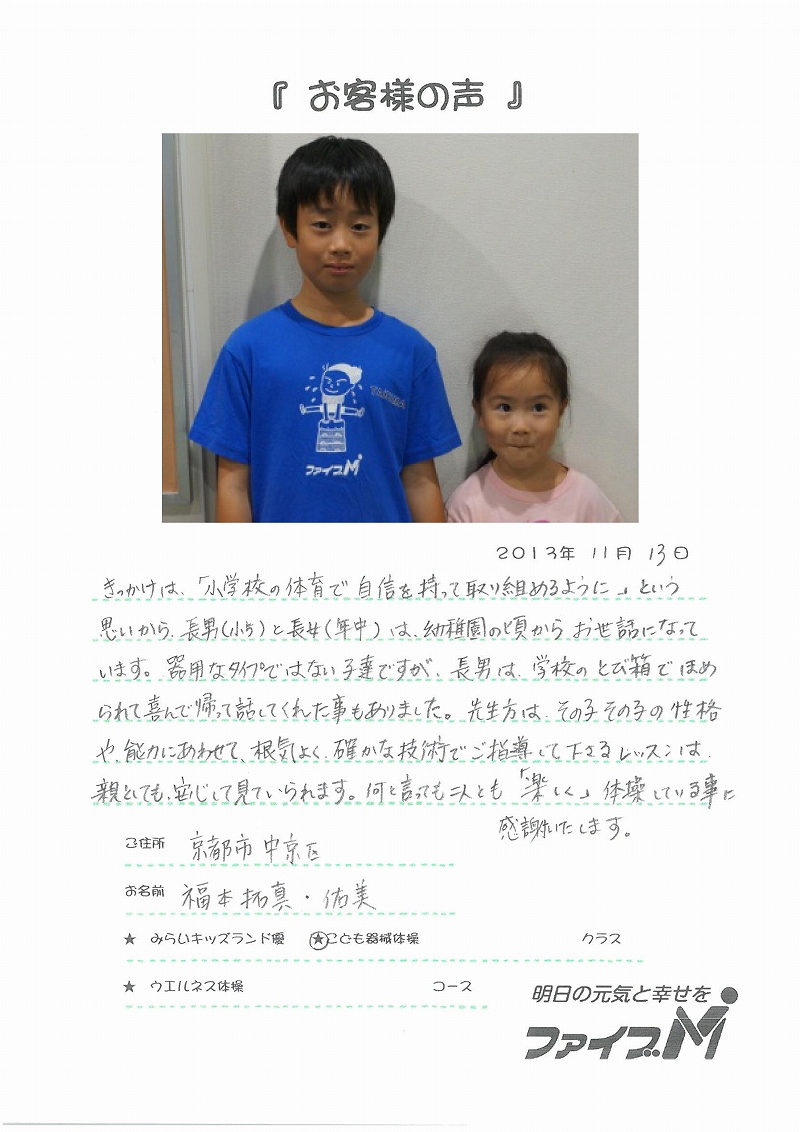 『 お客様の声 』
TAKUMA
ファイブM
2013年 11月 13日
きっかけは、「小学校の体育で自信を持って取り組めるように」という
思いから、長男(小5)と長女(年中)は、幼稚園の頃からお世話になって
います。器用なタイプではない子達ですが、長男は、学校のとび箱でほめ
られて喜んで帰って話してくれた事もありました。先生方は、その子その子の性格
や、能力にあわせて、根気よく、確かな技術でご指導して下さるレッスンは、
親としても、安心して見ていられます。何と言っても二人とも「楽しく」体操している事に
感謝いたします。
ご住所 京都市中京区
お名前 福本拓真・佑美
★ みらいキッズランド優 ★こども器械体操 クラス
★ ウエルネス体操 コース
明日の元気と幸せを
ファイブM